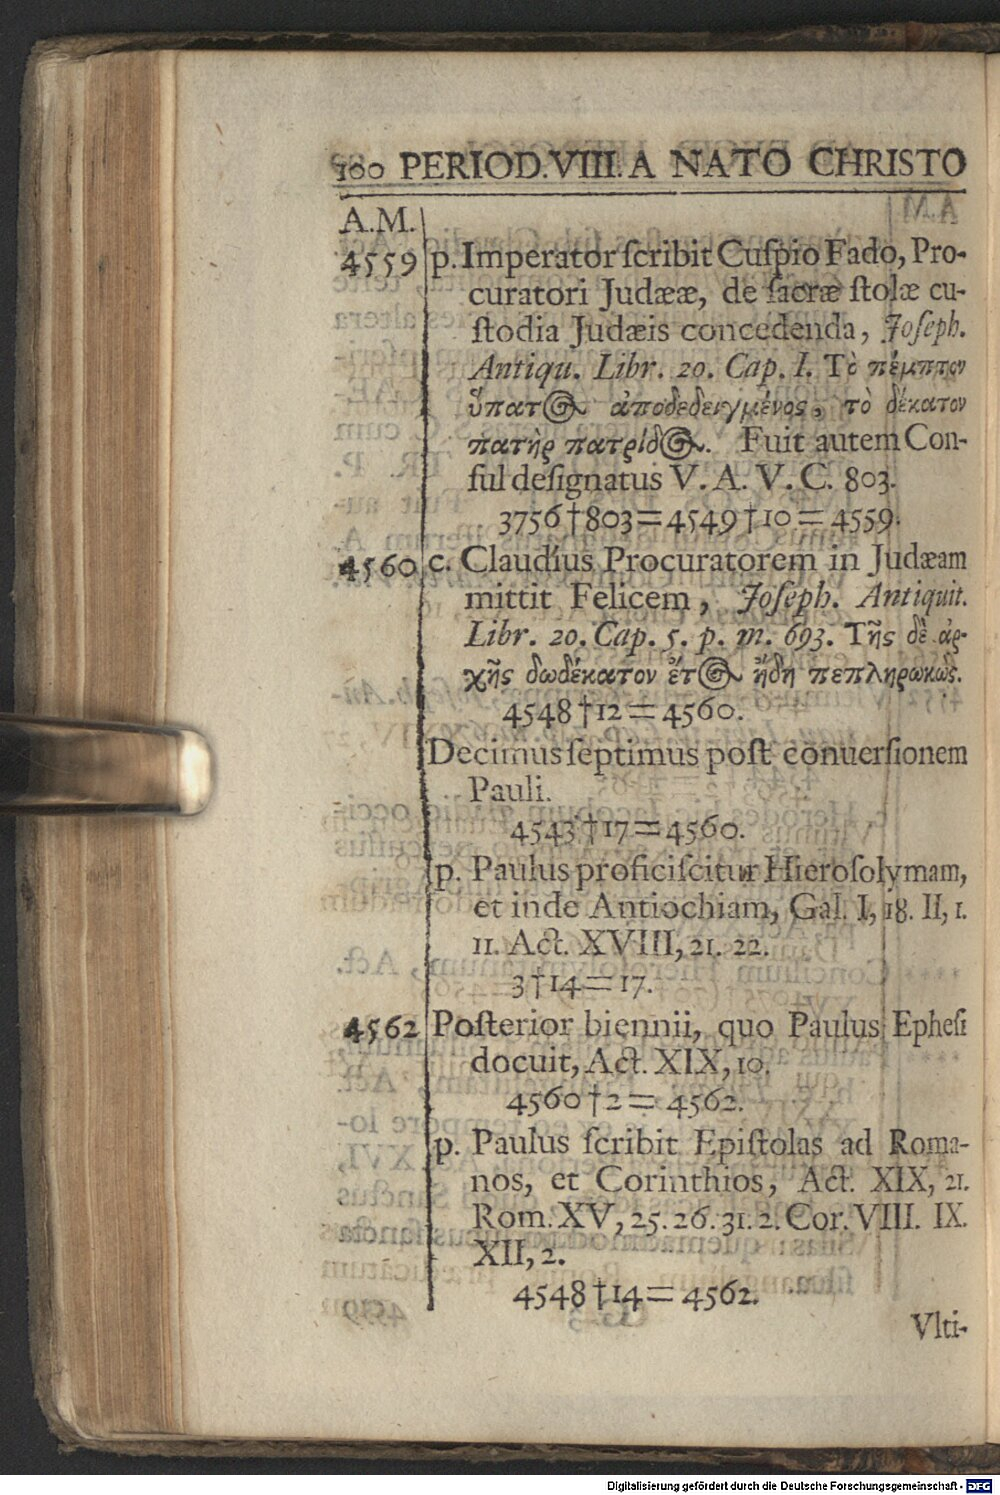 160 PERIOD. VIII. A NATO CHRISTO
A.M.
4559 p. Imperator ſcribit Cuſpio Fado, Pro-
curatori Judææ, de ſacræ ſtolæ cu-
ſtodia Judæis concedenda, Joſeph.
Antiqu. Libr. 20. Cap. I. Τὸ πέμπτον
ὕπατος ἀποδεδειγμένος, τὸ δέκατον
πατὴρ πατρίδος. Fuit autem Con-
ſul deſignatus V. A. V. C. 803.
3756†803=4549†10=4559.
4560 c. Claudius Procuratorem in Judæam
mittit Felicem, Joſeph. Antiquit.
Libr. 20. Cap. 5. p. m. 693. Τῆς δὲ ἀρ-
χῆς δωδέκατον ἔτος ἤδη πεπληρωκὼς.
4548†12=4560.
Decimus ſeptimus poſt conuerſionem
Pauli.
4543†17=4560.
p. Paulus proficiſcitur Hieroſolymam,
et inde Antiochiam, Gal. I, 18. II, 1.
11. Act. XVIII, 21. 22.
3†14=17.
4562 Poſterior biennii, quo Paulus Epheſi
docuit, Act. XIX, 10.
4560†2=4562.
p. Paulus ſcribit Epiſtolas ad Roma-
nos, et Corinthios, Act. XIX, 21.
Rom. XV, 25. 26. 31. 2. Cor. VIII. IX.
XII, 2.
4548†14=4562.
Vlti-
Digitalisierung gefördert durch die Deutsche Forschungsgemeinschaft - DFG